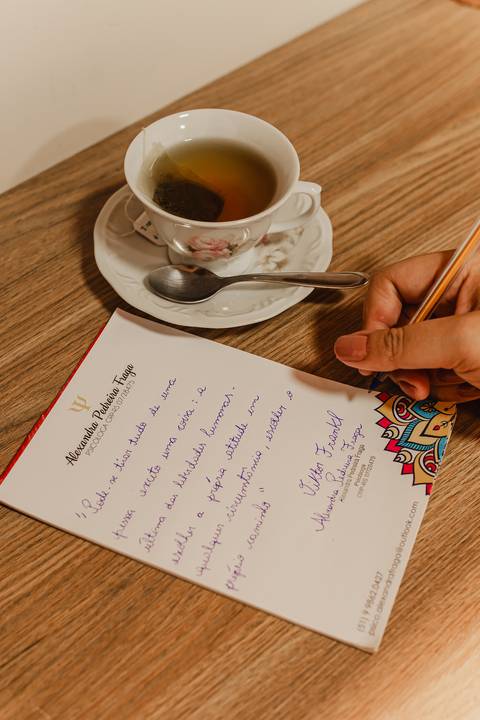 Alexandra Pedreira Fraga
PSICÓLOGA CRP/RS 07/28475
"Pode-se tirar tudo de uma
pessoa exceto uma coisa: a
última das liberdades humanas -
escolher a própria atitude em
qualquer circunstância, escolher o
próprio caminho"
Viktor Frankl
Alexandra Pedreira Fraga
Alexandra Pedreira Fraga
Psicóloga
CRP/RS 07/28475
(51) 9 9862.0427
psico.alexandrafraga@outlook.com